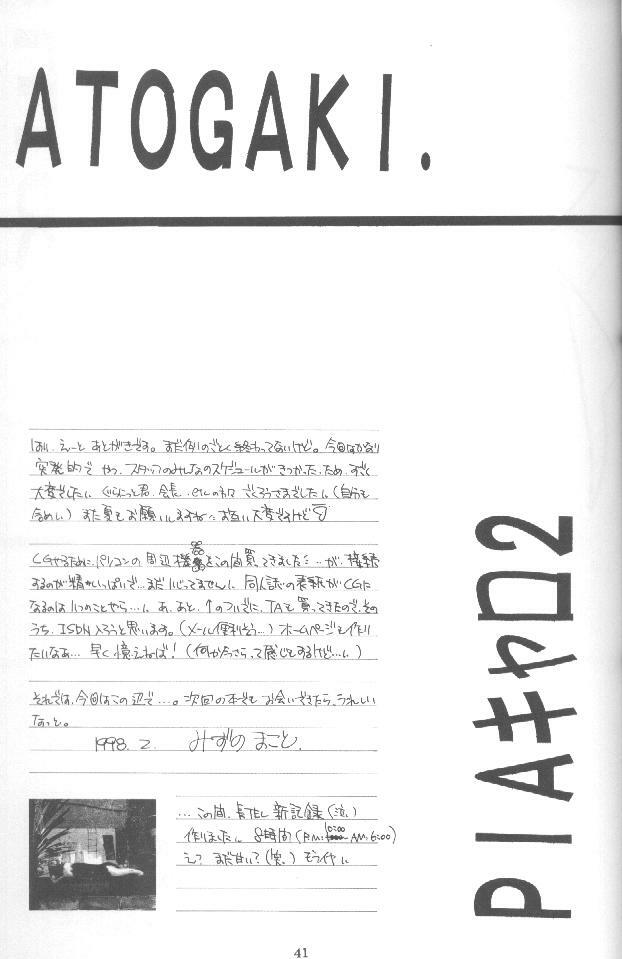 ATOGAKI.
はい、えーと あとがきです。まだ例のごとく終わってないけど。今回かなり
突発的で やつ、スタッフのみんなのスケジュールがきつかった、ため、すごく
大変でした、ぐらにっと君、会長、etcの方々 ごくろうさまでした、(自分も
含めい) また夏もお願いしますね お互い大変ですけど
CGやるために、パソコンの周辺機器をこの間買ってきました…が、接続
するのが精いっぱいで…まだいじってません、同人誌の表紙がCGに
なるのはいつのことやら…、あ、あと、↑のついでに、TAも買ってきたので、その
うち、ISDN入ろうと思います。(メール便利そう…) ホームページも作り
たいなあ… 早く憶えねば! (何かたっさらって感じもするけど…、)
それでは、今回はこの辺で…。次回の本でも お会いできたら、うれしい
なっと。
1998. 2. みずの まこと.
…この間、長TEL 新記録(泣)
作りました、8時間(P.M.10:00 A.M.6:00)
え? まだ甘い?(笑) モライヤ、
PIAキャロ2
41